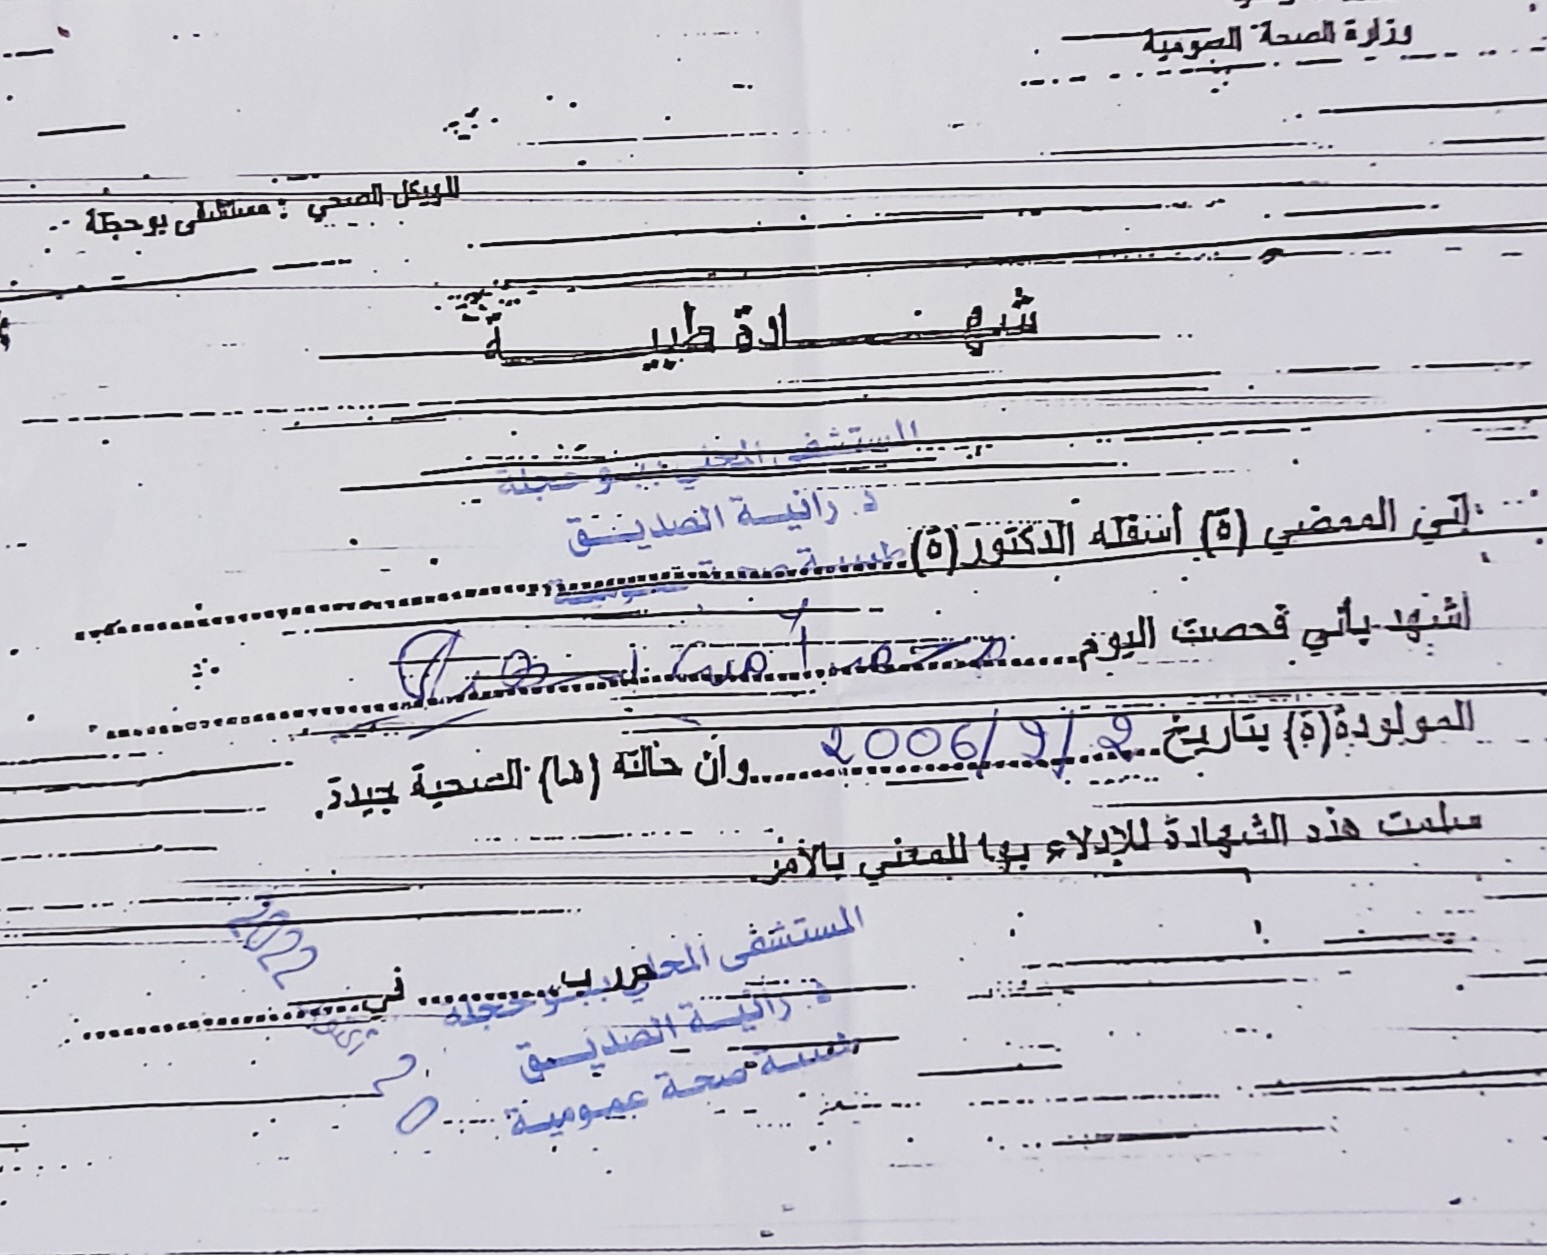 وزارة الصحة العمومية
الهيكل الصحي : مستشفى بوحجلة
شهـــادة طبيـــة
المستشفى المحلي ببوحجلة
د. رانيـة الصديـق
طبيبة صحة عمومية
إني الممضي (ة) أسفله الدكتور (ة)
أشهد بأني فحصت اليوم محمد أمين
المولودة(ة) بتاريخ 2006/9/2 وأن حالته (ها) الصحية جيدة.
سلمت هذه الشهادة للإدلاء بها للمعني بالأمر.
حرر ب.......... في..........
2022
المستشفى المحلي ببوحجلة
د. رانيـة الصديـق
طبيبة صحة عمومية